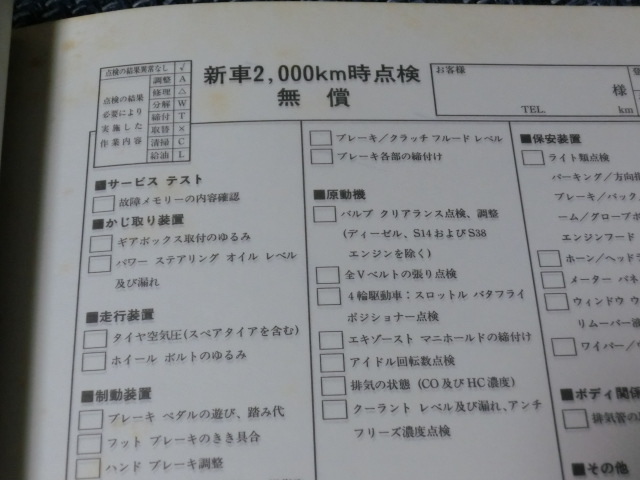 点検の結果異常なし √
点検の結果
必要により
実施した
作業内容
調整 A
修理 △
分解 W
締付 T
取替 ×
清掃 C
給油 L
新車2,000km時点検
無 償
お客様
様
TEL.
km
■サービス テスト
故障メモリーの内容確認
■かじ取り装置
ギアボックス取付のゆるみ
パワー ステアリング オイル レベル
及び漏れ
■走行装置
タイヤ空気圧(スペアタイアを含む)
ホイール ボルトのゆるみ
■制動装置
ブレーキ ペダルの遊び、踏み代
フット ブレーキのきき具合
ハンド ブレーキ調整
ブレーキ/クラッチ フルード レベル
ブレーキ各部の締付け
■原動機
バルブ クリアランス点検、調整
(ディーゼル、S14およびS38
エンジンを除く)
全Vベルトの張り点検
4輪駆動車:スロットル バタフライ
ポジショナー点検
エキゾースト マニホールドの締付け
アイドル回転数点検
排気の状態 (CO及びHC濃度)
クーラント レベル及び漏れ、アンチ
フリーズ濃度点検
■保安装置
ライト類点検
パーキング/方向指
ブレーキ/バック
ーム/グローブボ
エンジンフード
ホーン/ヘッドラ
メーター パネ
ウィンドウ ウ
リムーバー液
ワイパー/
■ボディ関係
排気管の
■その他